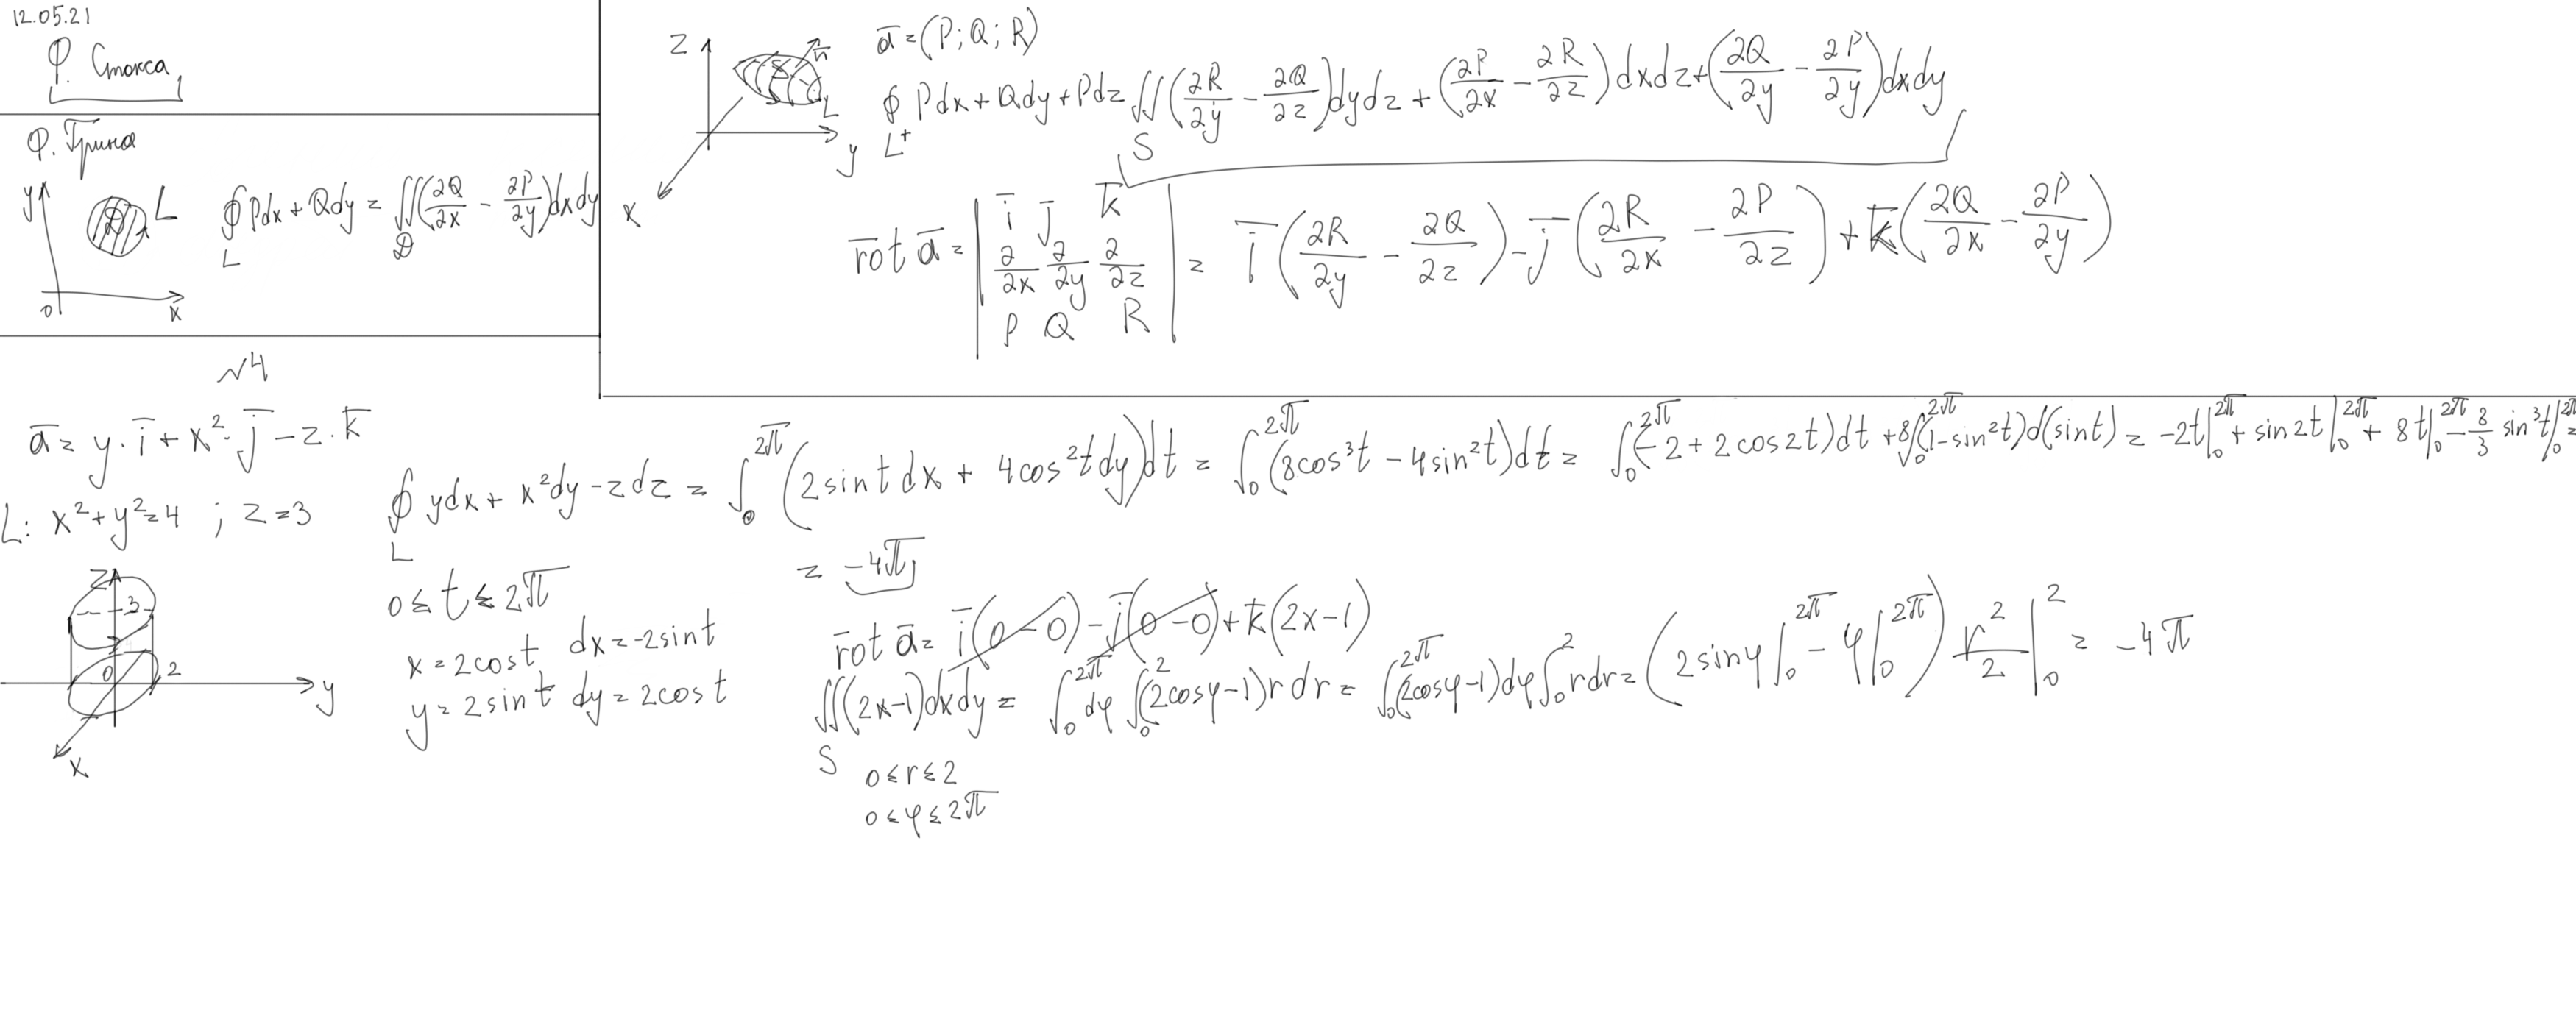 12.05.21
Ф. Стокса
Ф. Грина
y
D
L
0
x
∮_L Pdx + Qdy = ∬_D (∂Q/∂x - ∂P/∂y) dxdy
z
S
n̄
L
y
x
ā = (P; Q; R)
∮_{L⁺} Pdx + Qdy + Pdz = ∬_S (∂R/∂y - ∂Q/∂z) dydz + (∂P/∂x - ∂R/∂z) dxdz + (∂Q/∂y - ∂P/∂y) dxdy
rot ā = | ī j̄ k̄ |
| ∂/∂x ∂/∂y ∂/∂z |
| P Q R |
= ī (∂R/∂y - ∂Q/∂z) - j̄ (∂R/∂x - ∂P/∂z) + k̄ (∂Q/∂x - ∂P/∂y)
№4
ā = y · ī + x² · j̄ - z · k̄
L: x² + y² = 4 ; z = 3
z
3
0
2
y
x
∮_L ydx + x²dy - zdz = ∫₀^{2π} (2sint dx + 4cos²t dy) dt = ∫₀^{2π} (8cos³t - 4sin²t) dt = ∫₀^{2π} (-2 + 2cos2t) dt + 8∫₀^{2π} (1 - sin²t) d(sint) = -2t|₀^{2π} + sin2t|₀^{2π} + 8t|₀^{2π} - 8/3 sin³t|₀^{2π} =
= -4π
0 ≤ t ≤ 2π
x = 2cost dx = -2sint
y = 2sint dy = 2cost
rot ā = ī(0 - 0) - j̄(0 - 0) + k̄(2x - 1)
∬_S (2x - 1) dxdy = ∫₀^{2π} dφ ∫₀² (2cosφ - 1) r dr = ∫₀^{2π} (2cosφ - 1) dφ ∫₀² r dr = (2sinφ|₀^{2π} - φ|₀^{2π}) r²/2 |₀² = -4π
0 ≤ r ≤ 2
0 ≤ φ ≤ 2π